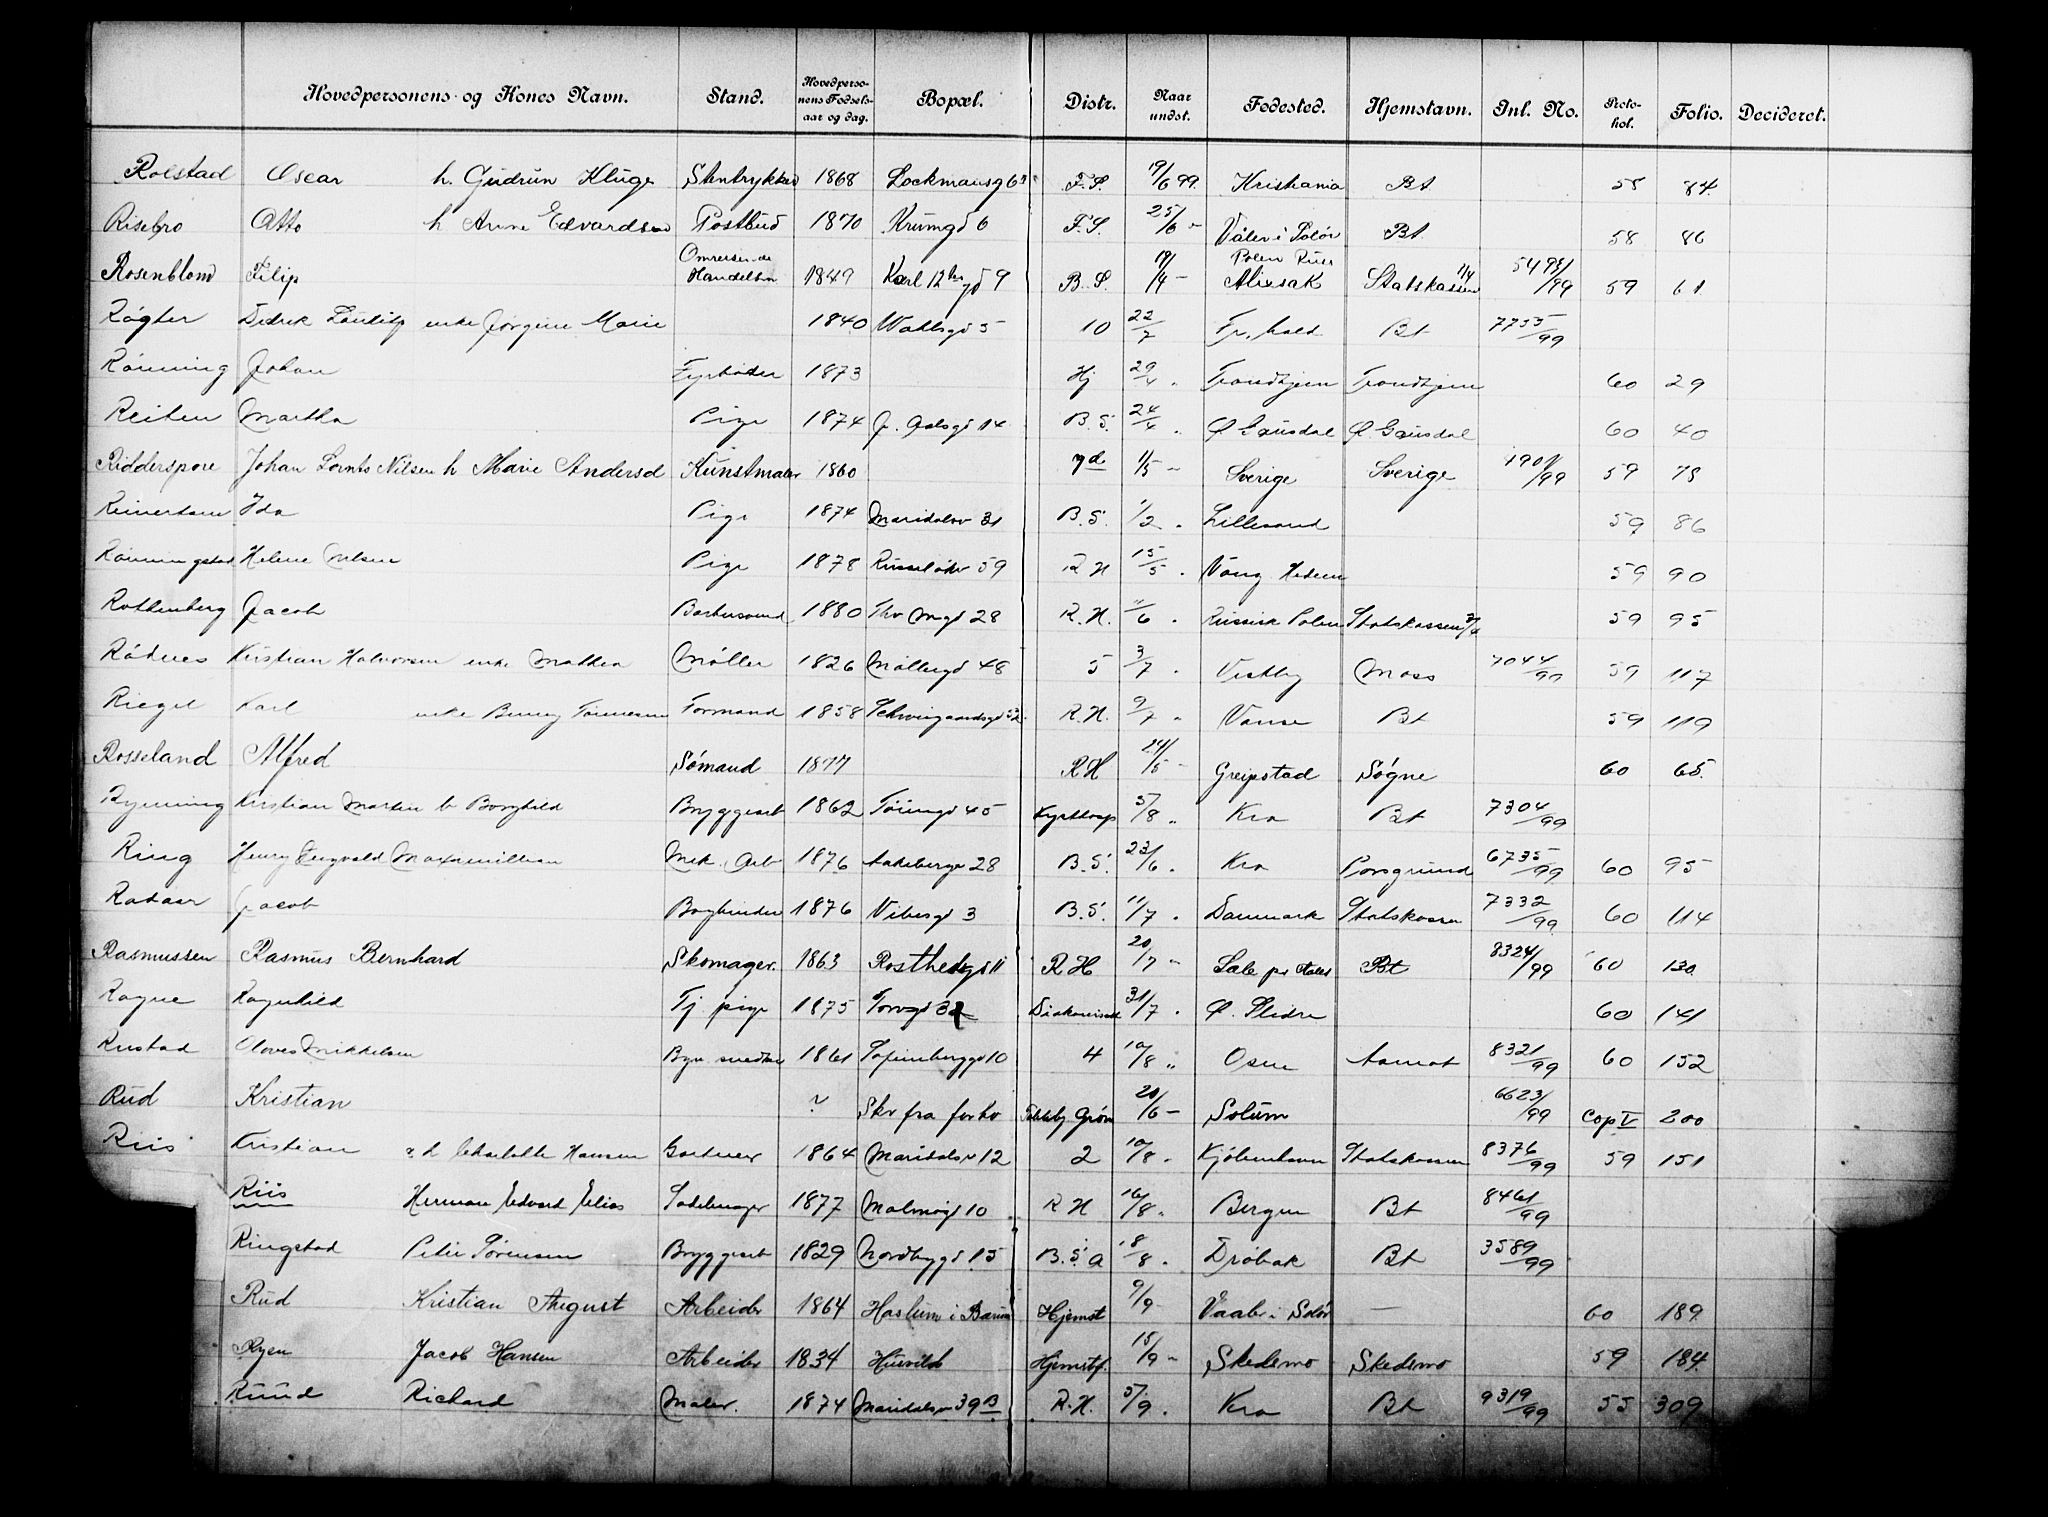 Hovedpersonens og Kones Navn. Stand. Hovedpersonens Fødselsaar og dag. Bopæl. Distr. Naar undst. Fødested. Hjemstavn. Inl. No. Protokol. Folio. Decideret.
Rolstad Oscar h. Gudrun Kluge Stentrykker 1868 F.S. 19/6 99. Kristiania Bt 58 84.
Risebro Otto h Anne Edvardsen Postbud 1870 Krumgd 6 F.S. 25/6 - Våler i Solør Bt. 58 86
Rosenblom Filip Omreisende Handelsm 1849 Karl 12tes gd 9 B.S. 19/4 - Polen Russ Statskassen 11/4 59 61
Røgter Enke Jørgine Marie 1840 Wahlsgd 5 10 22/7 Fr.hald Bt 7755/99
Rønning Johan Fyrbøder 1873 Hj 29/4 „ Trondhjem Trondhjem 60 29
Reiten Martha Pige 1874 J. Aalsgd 14 B.S. 24/4 „ Ø Gausdal Ø. Gausdal 60 40
Ridderspore Johan Lornts Nilsen h Marie Andersd Kunstmaler 1860 7de 1/5 - Sverige Sverige 4901/99 59 75
Reinertsen Ida Pige 1874 Maridalsv 31 B.S. 1/2 „ Lillesand 59 86
Rønningstad Helene Nilsen Pige 1878 Russeløkv 59 R H 15/5 „ Vang Hedem 59 90
Rothenberg Jacob Barbersvend 1880 Thv Mgd 28 R.H. 11/6 „ Russisk Polen Statskassen 59 95
Rødnes Kristian Halvorsen enke Mathea Møller 1826 Møllergd 48 5 3/7 „ Vestby Moss 7044/99 59 117
Riegel Karl enke Benny Tønnesen Formand 1858 Schweigaardsgd 52 R.H. 9/7 „ Vanse Bt 59 119
Rosseland Alfred Sømand 1877 R H 24/5 - Greipstad Søgne 60 65.
Rynning Kristian Marten h Borghild Bryggearb 1862 Tøiengd 45 5/8 „ Kra Bt 7304/99
Ring Henry Engvald Maximillian Mek. Arb 1876 Aakebergv 28 B.S. 23/6 „ Kra Porsgrund 6735/99 60 95
Jacob Bogbinder 1876 Vibesgd 3 B.S. 11/7 „ Danmark Statskassen 7332/99 60 114
Rasmussen Rasmus Bernhard Skomager. 1863 R H 20/7 - Bt 8324/99 60 130
Rogne Ragnhild Tj. pige 1875 Torvgd 32 31/7 „ Ø. Slidre 60 141
Rustad 1861 Tøienberggd 10 4 10/8 „ Osen Aamot 8321/99 60 152
Rud Kristian ? Skr fra forho 20/6 - Solum 6623/99 Cop V 200
Riis Kristian h Charlotte Hansen Gartner 1864 Maridalsv 12 2 10/8 „ Kjøbenhavn Statskassen 8376/99 59 151
Riis Herman Edvard Elias Sadelmager 1877 Malmøgd 10 R H 16/8 „ Bergen Bt 8461/99
Ringstad Peter Sørensen Bryggearb 1829 Nordbygd 15 B.S.a 18/8 „ Drøbak Bt 3589/99
Rud Kristian August Arbeider 1864 Haslum i Bærum Hjemst 9/9 - Vaaler i Solør — 60 189
Ryen Jacob Hansen Arbeider 1834 Husvild Hjemstf. 15/9 - Skedsmo Skedsmo 59 184
Ruud Richard Maler. 1874 Maridalsv 39 B R.H. 5/9 „ Kra Bt 9319/99 55 309